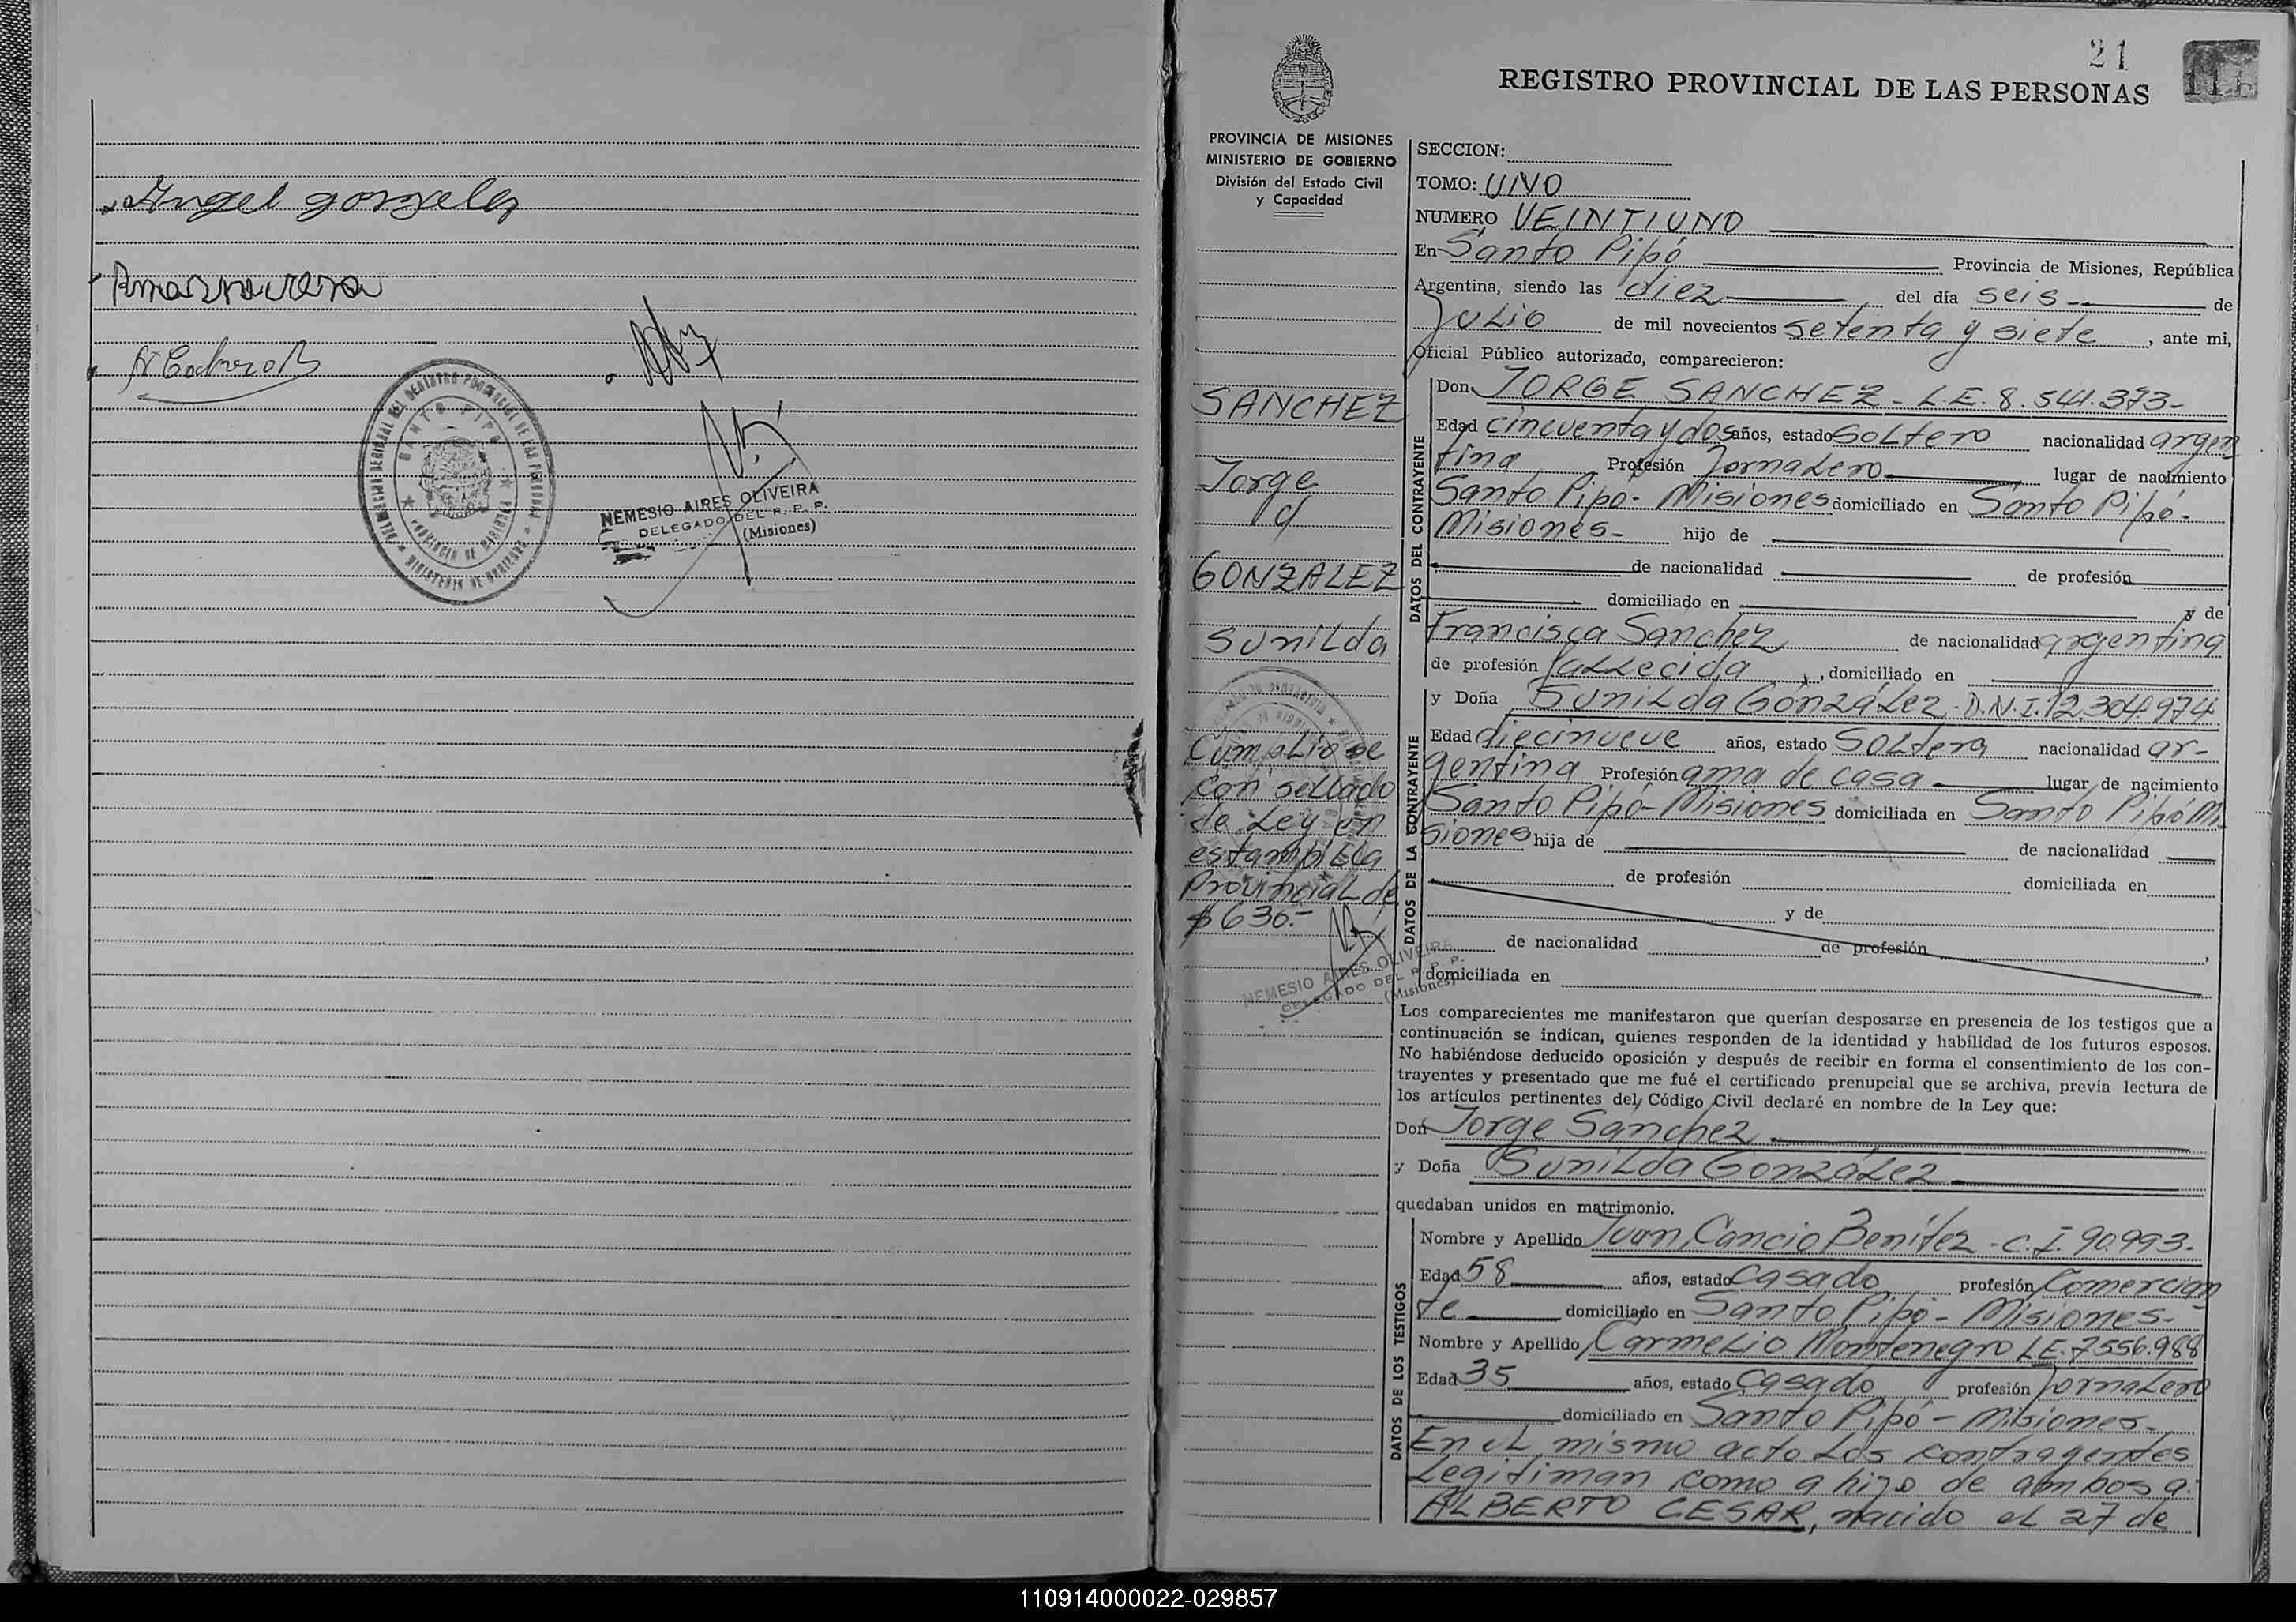 Angel gonzales
NEMESIO AIRES OLIVEIRA
DELEGADO DEL R. P. P.
(Misiones)
SANTO PIPO
21
REGISTRO PROVINCIAL DE LAS PERSONAS
PROVINCIA DE MISIONES
MINISTERIO DE GOBIERNO
División del Estado Civil
y Capacidad
SANCHEZ
Jorge
y
GONZALEZ
Sunilda
Cumpliose
con sellado
de Ley en
estampilla
Provincial de
$ 630.-
NEMESIO AIRES OLIVEIRA
DELEGADO DEL R. P. P.
(Misiones)
SECCION:
TOMO: UNO
NUMERO VEINTIUNO
En Santo Pipó Provincia de Misiones, República
Argentina, siendo las diez del día seis de
Julio de mil novecientos setenta y siete, ante mi,
Oficial Público autorizado, comparecieron:
DATOS DEL CONTRAYENTE
Don JORGE SANCHEZ - L.E. 8.541.373-
Edad cincuenta y dos años, estado soltero nacionalidad argen
tina Profesión Jornalero lugar de nacimiento
Santo Pipó - Misiones domiciliado en Santo Pipó -
Misiones - hijo de
de nacionalidad de profesión
domiciliado en y de
Francisca Sanchez de nacionalidad argentina
de profesión fallecida, domiciliado en
DATOS DE LA CONTRAYENTE
y Doña Sunilda González - D.N.I. 12.304.974
Edad diecinueve años, estado soltera nacionalidad ar-
gentina Profesión ama de casa lugar de nacimiento
Santo Pipó - Misiones domiciliada en Santo Pipó Mi
siones hija de de nacionalidad
de profesión domiciliada en
y de
de nacionalidad de profesión ,
domiciliada en
Los comparecientes me manifestaron que querían desposarse en presencia de los testigos que a
continuación se indican, quienes responden de la identidad y habilidad de los futuros esposos.
No habiéndose deducido oposición y después de recibir en forma el consentimiento de los con-
trayentes y presentado que me fué el certificado prenupcial que se archiva, previa lectura de
los artículos pertinentes del Código Civil declaré en nombre de la Ley que:
Don Jorge Sánchez
y Doña Sunilda González
quedaban unidos en matrimonio.
DATOS DE LOS TESTIGOS
Nombre y Apellido Juan Cancio Benítez - C.I. 90.993.
Edad 58 años, estado casado profesión Comercian
te domiciliado en Santo Pipó - Misiones -
Nombre y Apellido Carmelio Montenegro L.E. 7.556.988
Edad 35 años, estado casado profesión Jornalero
domiciliado en Santo Pipó - Misiones -
En el mismo acto los contrayentes
legitiman como a hijo de ambos a:
ALBERTO CESAR, nacido el 27 de
110914000022-029857